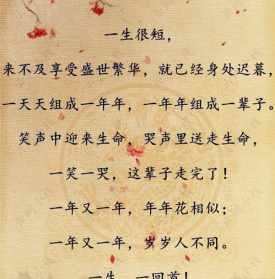 一生很短，
来不及享受盛世繁华，就已经身处迟暮，
一天天组成一年年，一年年组成一辈子。
笑声中迎来生命，哭声里送走生命，
一笑一哭，这辈子走完了！
一年又一年，年年花相似；
一年又一年，岁岁人不同。
一生，一回首！